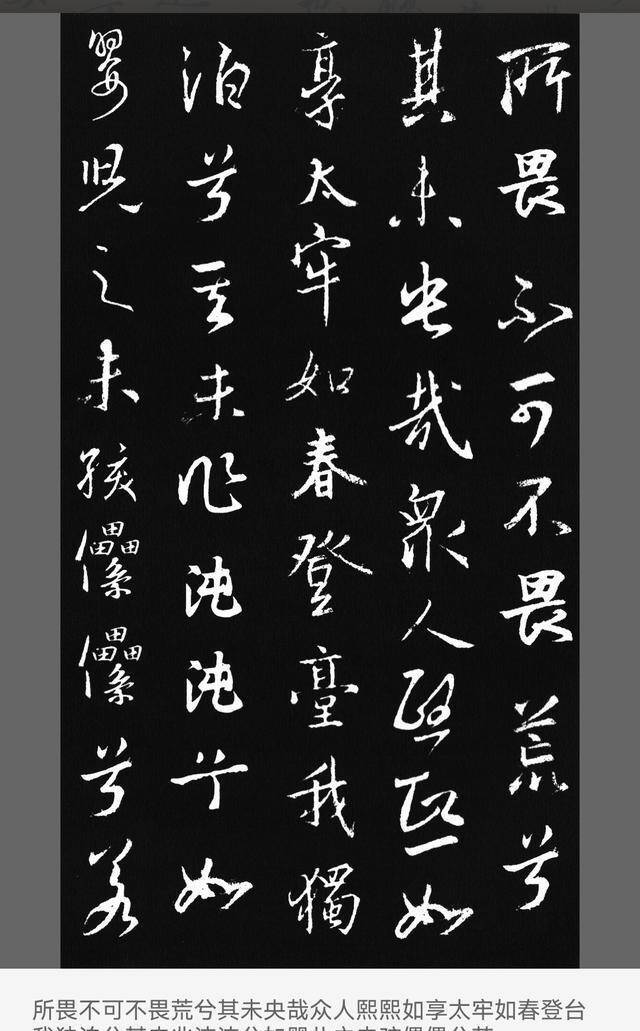 所畏不可不畏荒兮
其未央哉衆人熙熙如
享太牢如春登臺我獨
泊兮其未兆沌沌兮如
嬰兒之未孩儽儽兮若
所畏不可不畏荒兮其未央哉众人熙熙如享太牢如春登台